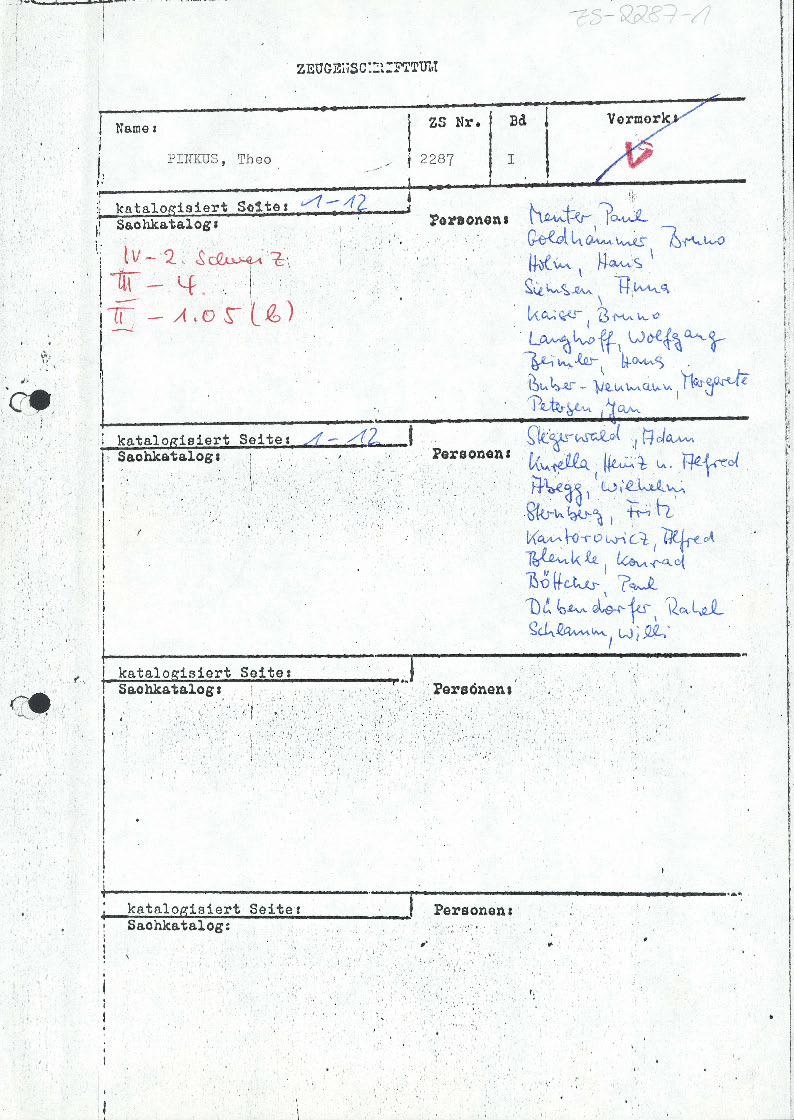 ZS-2287-1
ZEUGENSCHRIFTTUM
Name: ZS Nr. Bd Vermerk:
PINKUS, Theo 2287 I
katalogisiert Seite: 1-12
Sachkatalog:
IV-2. Schweiz
III - 4.
II - 1.05 (b)
Personen:
Menter, Paul
Goldhammer, Bruno
Holm, Hans
Siemsen, Anna
Kaiser, Bruno
Langhoff, Wolfgang
Beimler, Hans
Buber-Neumann, Margarete
Petersen, Jan
katalogisiert Seite: 1-12
Sachkatalog:
Personen:
Stegerwald, Adam
Kurella, Heinz u. Alfred
Abegg, Wilhelm
Sternberg, Fritz
Kantorowicz, Alfred
Blenkle, Konrad
Böttcher, Paul
Dübendorfer, Rahel
Schlamm, Willi
katalogisiert Seite:
Sachkatalog:
Personen:
katalogisiert Seite:
Sachkatalog:
Personen: